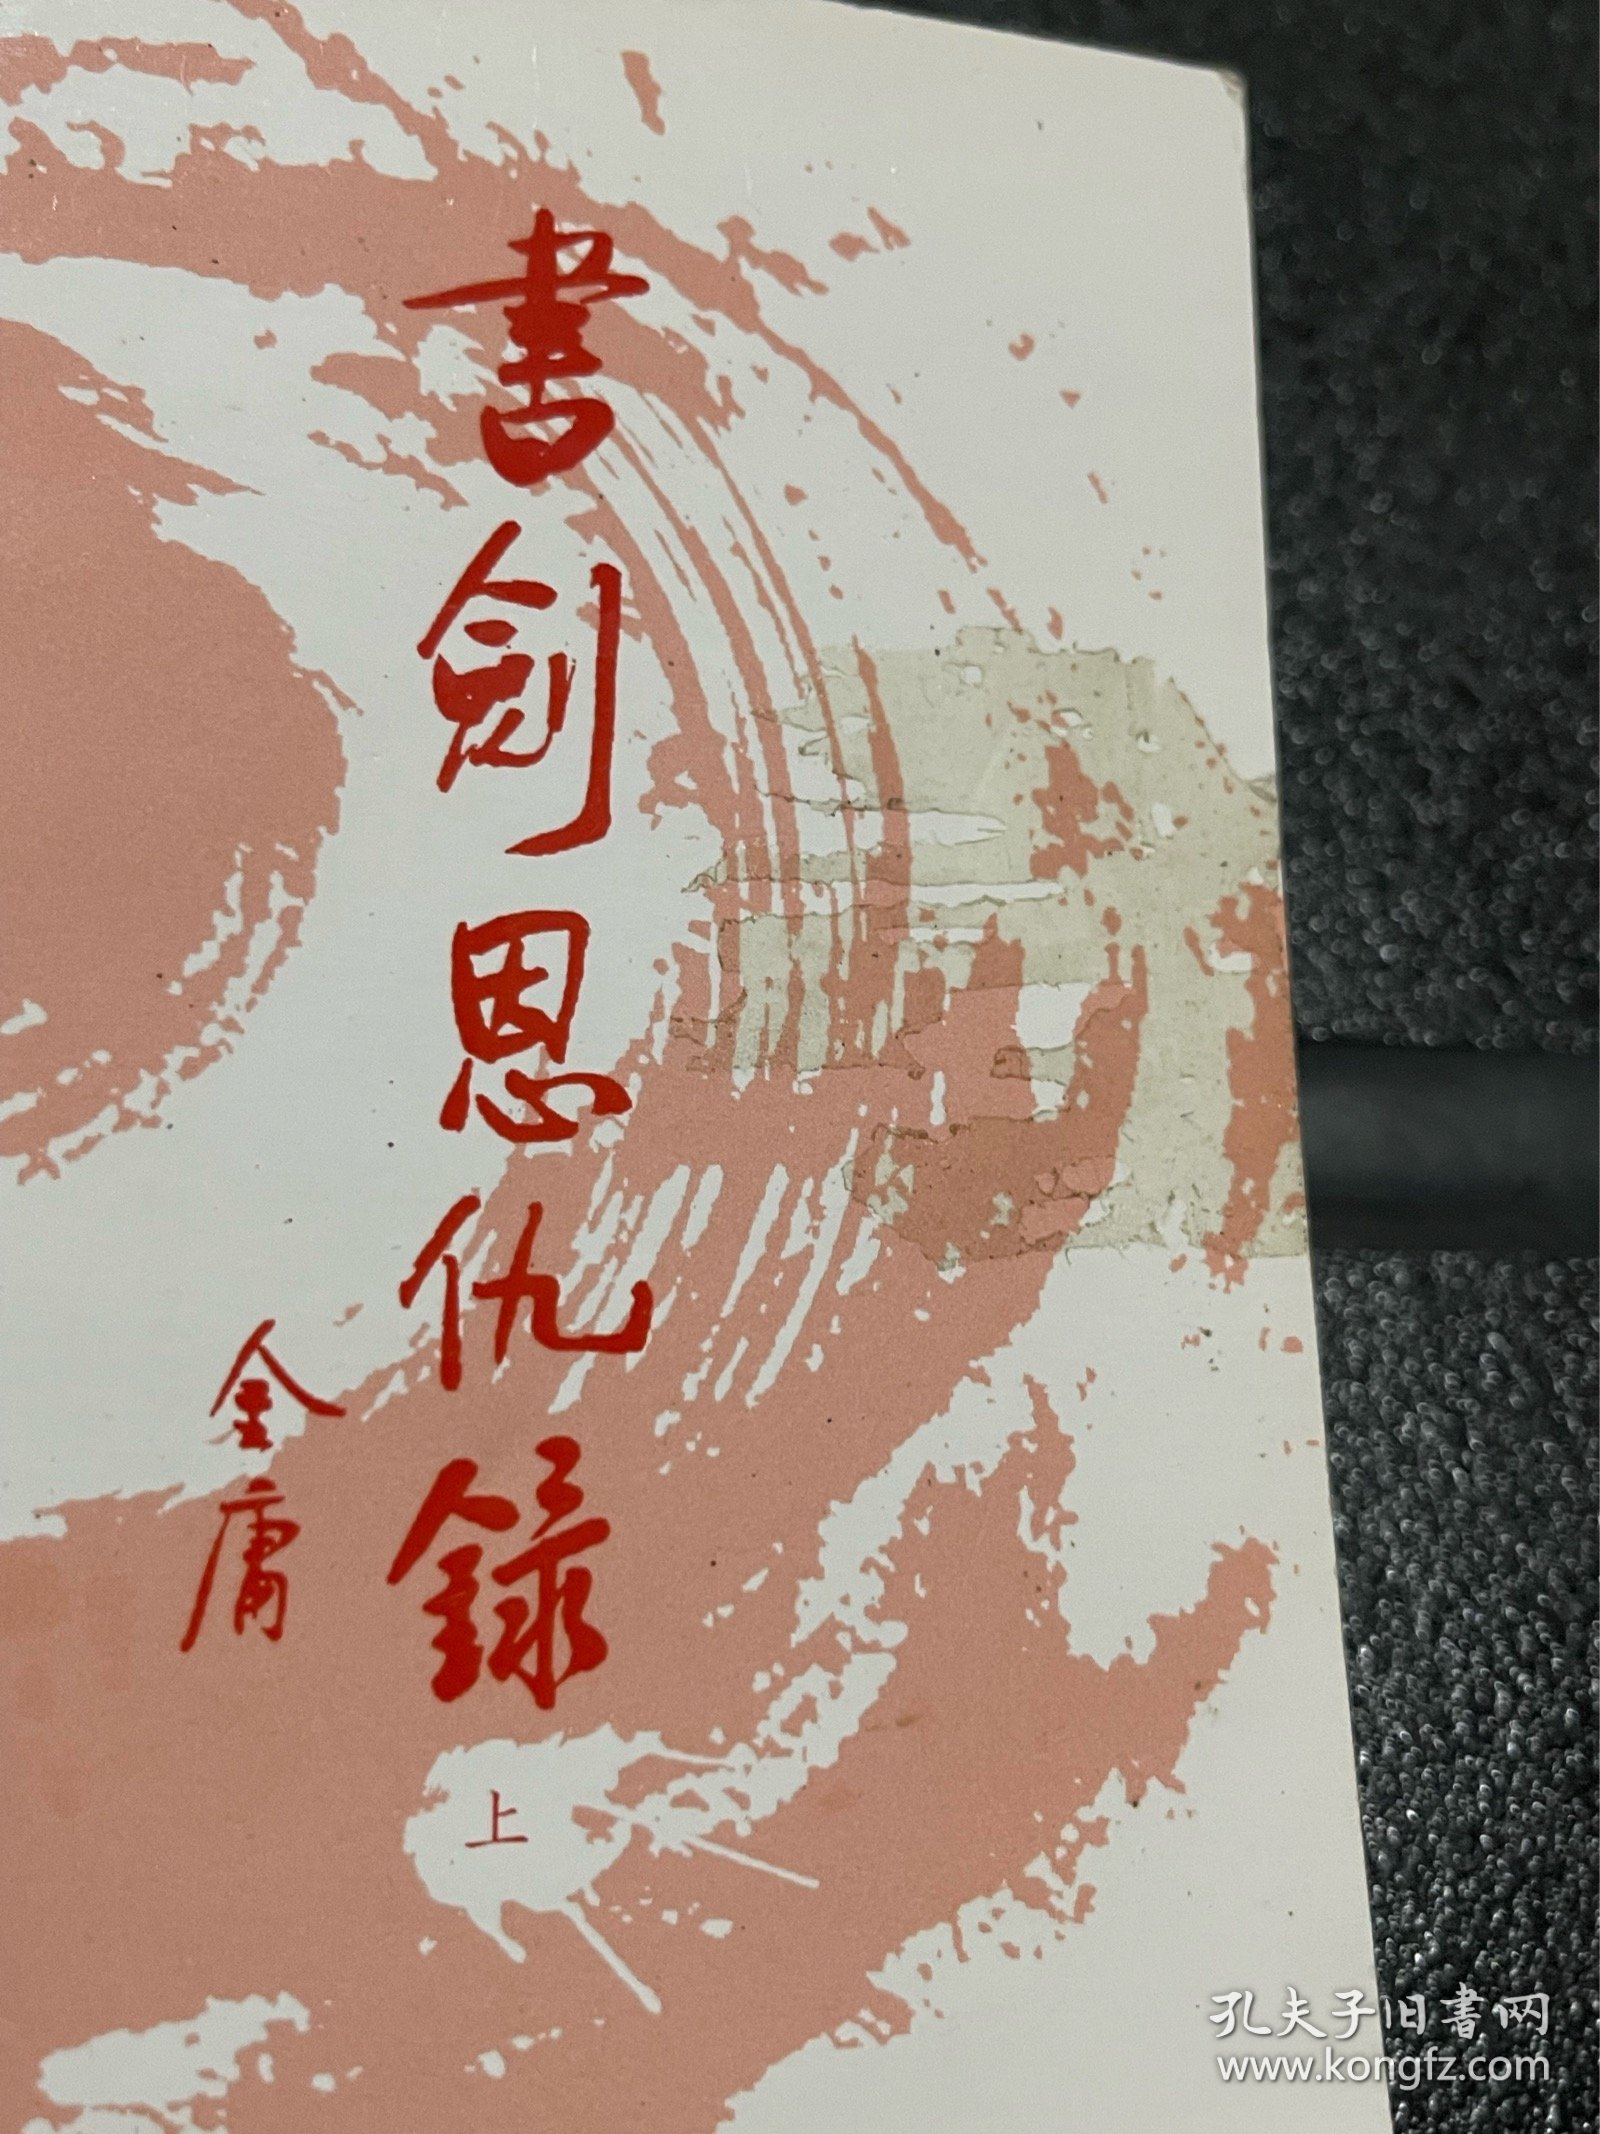 書劍恩仇錄
金庸
上
孔夫子旧書网
www.kongfz.com